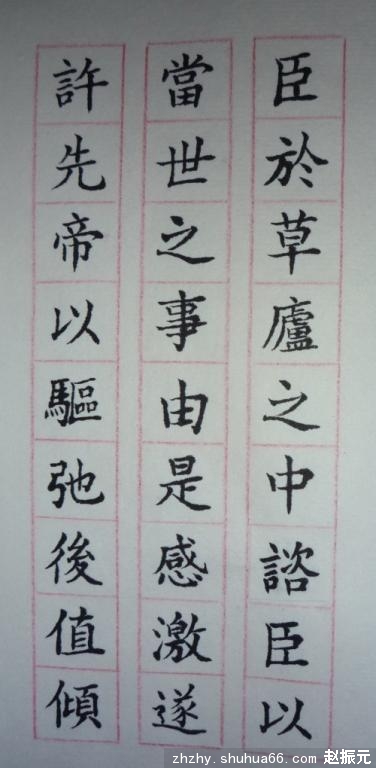 臣於草廬之中諮臣以
當世之事由是感激遂
許先帝以驅弛後值傾
zhzhy.shuhua66.com 赵振元